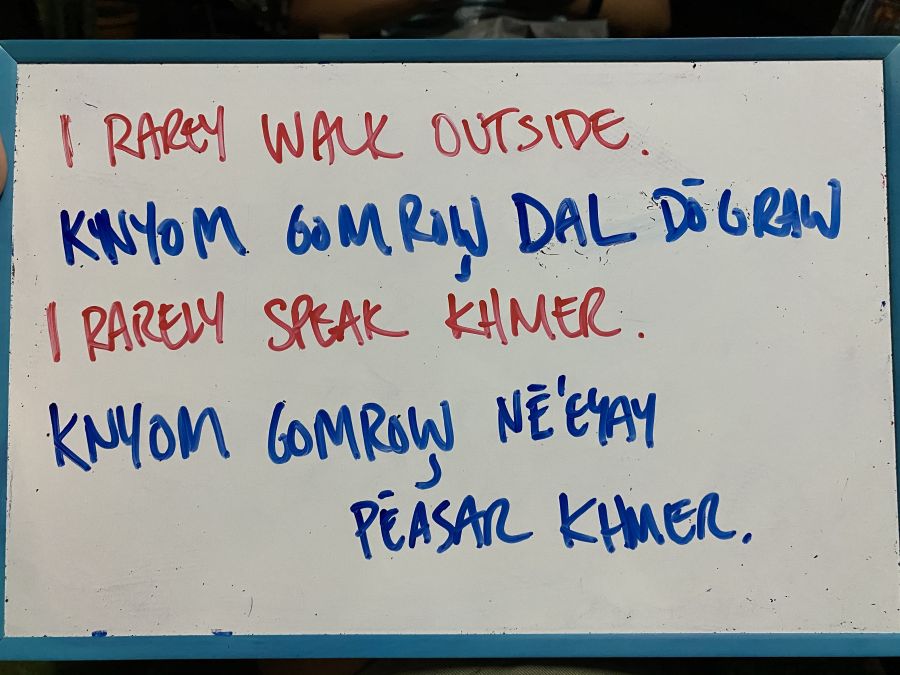 I RAREY WALK OUTSIDE.
KNYOM GOMROW̦ DAL DŌGRAW
I RARELY SPEAK KHMER.
KNYOM GOMROW̦ NĒ'EYAY
PĒASAR KHMER.